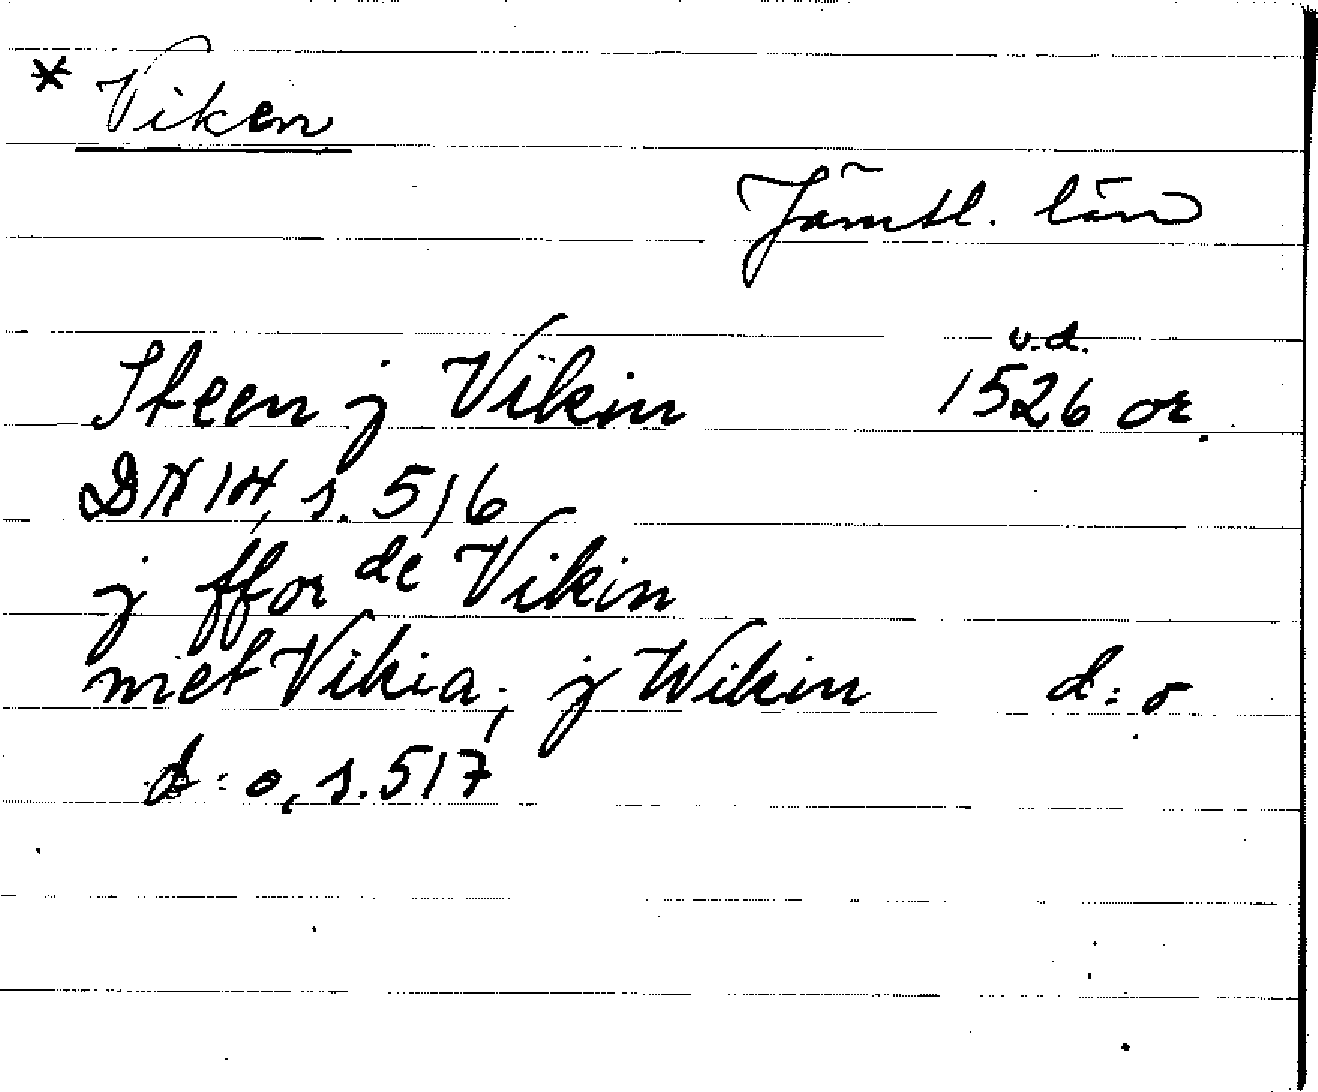 * Viken
Jämtl. län
u.d.
Steen j Vikin 1526 or.
DN 14, s. 516
j ffor de Vikin
met Vikia, j Wikin d:o
d:o, s. 517